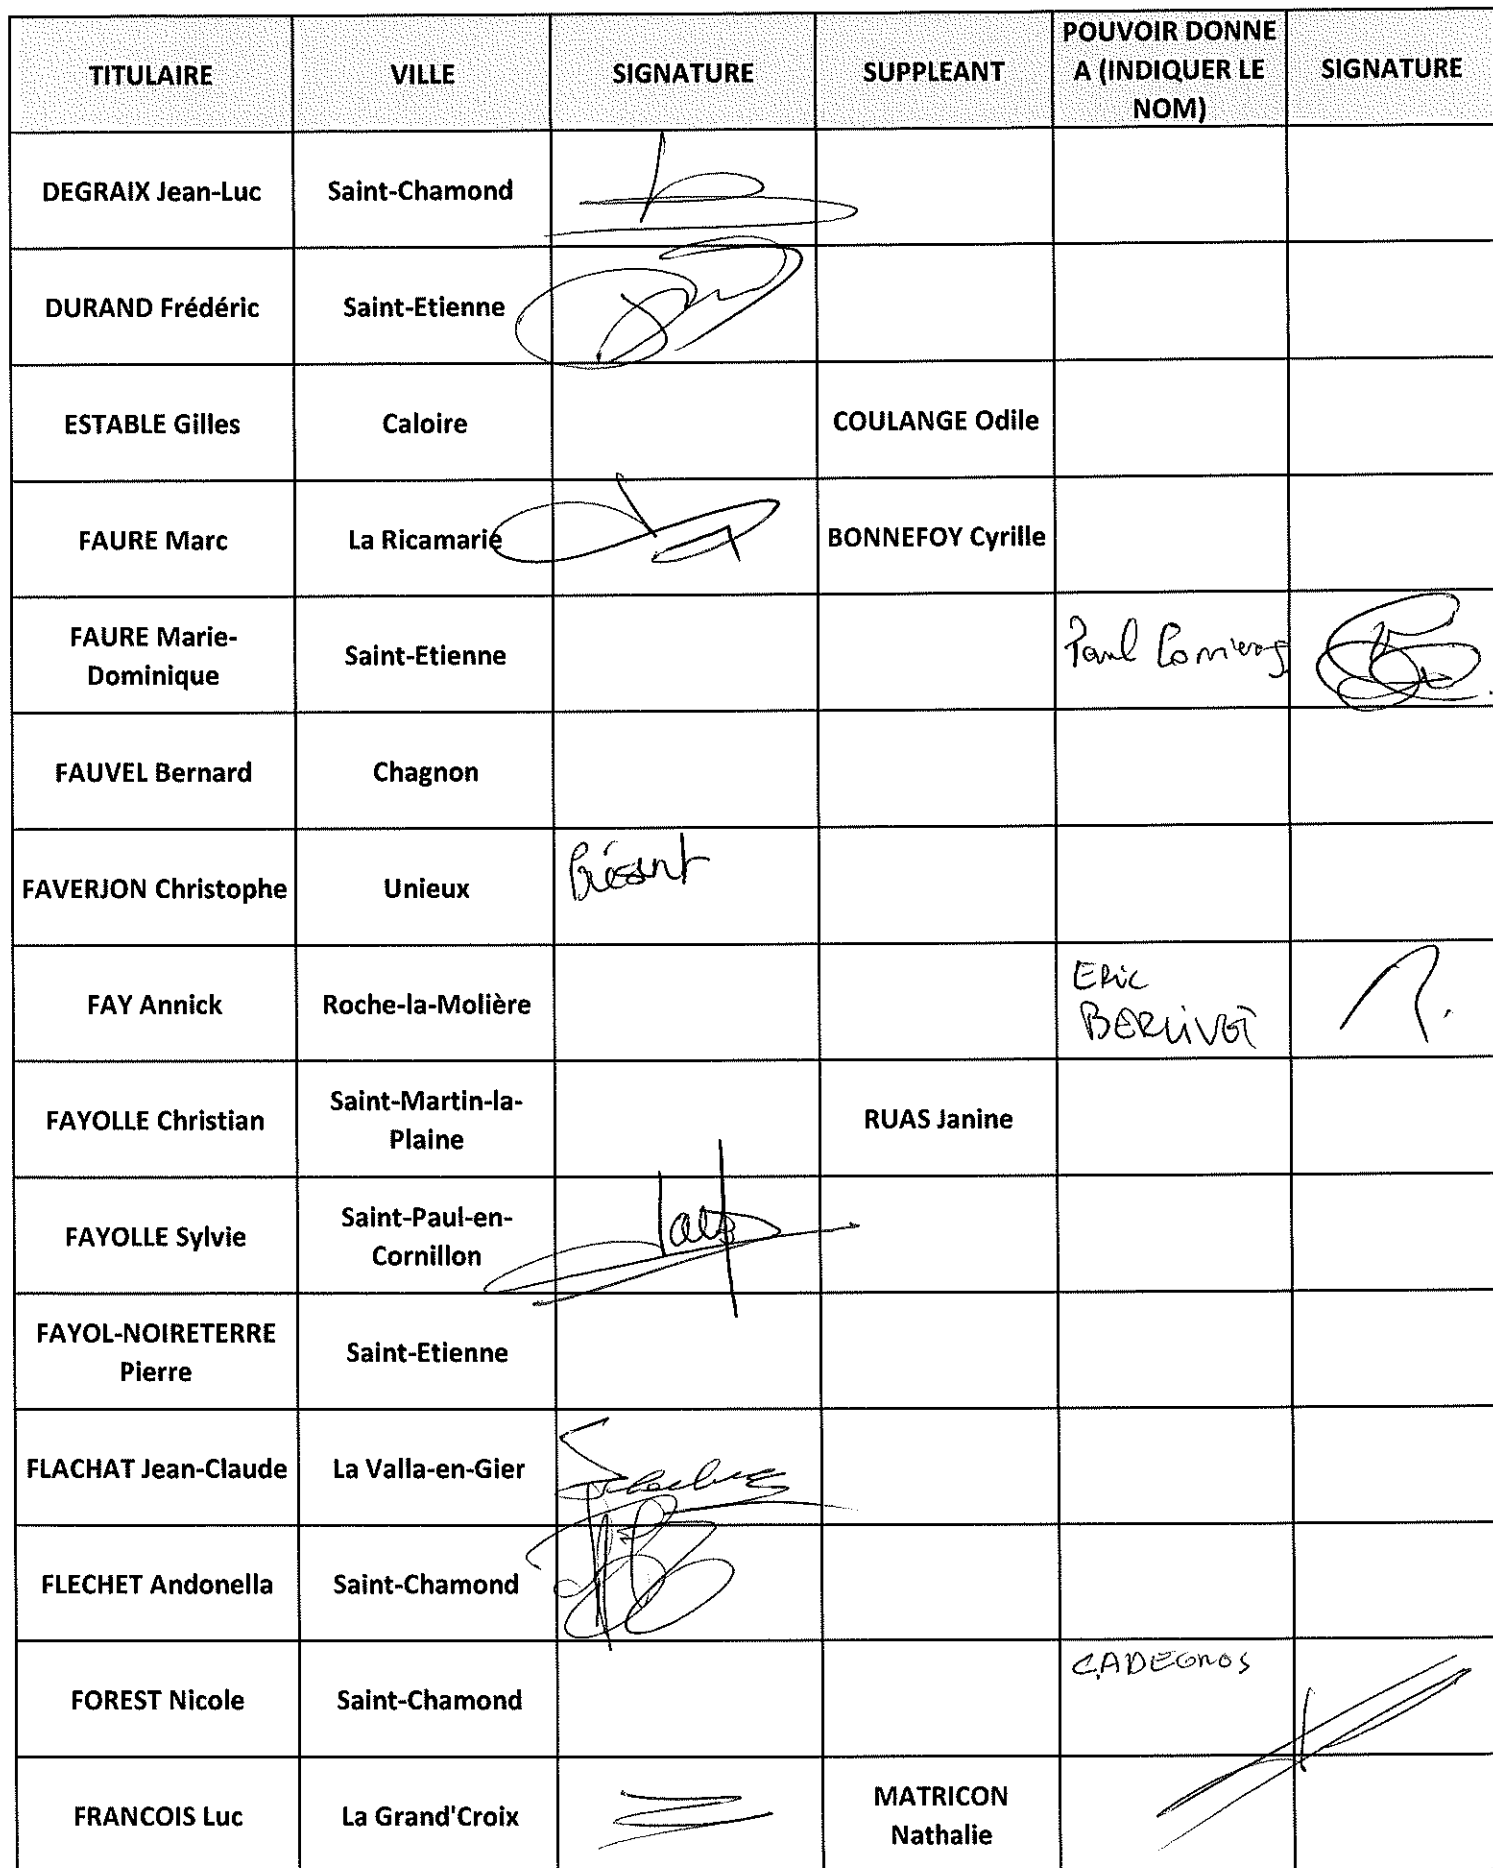 TITULAIRE
VILLE
SIGNATURE
SUPPLEANT
POUVOIR DONNE
A (INDIQUER LE
NOM)
SIGNATURE
DEGRAIX Jean-Luc
Saint-Chamond
DURAND Frédéric
Saint-Etienne
ESTABLE Gilles
Caloire
COULANGE Odile
FAURE Marc
La Ricamarie
BONNEFOY Cyrille
FAURE Marie-
Dominique
Saint-Etienne
Paul
FAUVEL Bernard
Chagnon
FAVERJON Christophe
Unieux
Présent
FAY Annick
Roche-la-Molière
ERiC
BERLiVET
FAYOLLE Christian
Saint-Martin-la-
Plaine
RUAS Janine
FAYOLLE Sylvie
Saint-Paul-en-
Cornillon
FAYOL-NOIRETERRE
Pierre
Saint-Etienne
FLACHAT Jean-Claude
La Valla-en-Gier
FLECHET Andonella
Saint-Chamond
FOREST Nicole
Saint-Chamond
CADEGROS
FRANCOIS Luc
La Grand'Croix
MATRICON
Nathalie